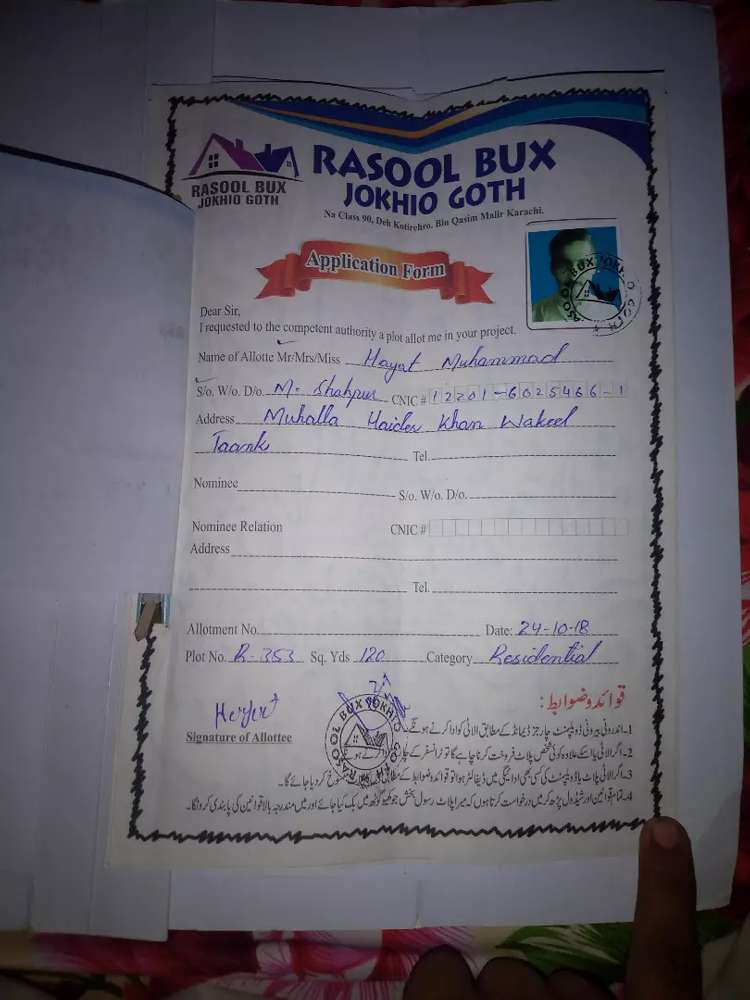 RASOOL BUX
JOKHIO GOTH
RASOOL BUX
JOKHIO GOTH
Na Class 90, Deh Kotirehro, Bin Qasim Malir Karachi.
Application Form
Dear Sir,
I requested to the competent authority a plot allot me in your project.
Name of Allotte Mr/Mrs/Miss Hayat Muhammad
S/o. W/o. D/o. M. Shahpur CNIC # 12201-6025466-1
Address Muhalla Haider Khan Wakeel
Taank Tel.
Nominee S/o. W/o. D/o.
Nominee Relation CNIC #
Address
Tel.
Allotment No. Date: 24-10-18
Plot No. R-353 Sq. Yds 120 Category Residential
Signature of Allottee
RASOOL BUX JOKHIO GOTH
قوائد و ضوابط:
1۔ اندرونی بیرونی ڈویلپمنٹ چارجز ڈیمانڈ کے مطابق الاٹی کو ادا کرنے ہونگے۔
2۔ اگر الاٹی یا اسکے علاوہ کوئی شخص پلاٹ فروخت کرنا چاہے گا تو ٹرانسفر کے
3۔ اگر الاٹی پلاٹ یا ڈویلپمنٹ کی کسی بھی ادائیگی میں ڈیفالٹر ہوا تو قوائد و ضوابط کے مطابق کر دیا جائے گا۔
4۔ تمام قوانین اور شیڈول پڑھ کر میں درخواست کرتا ہوں کہ میرا پلاٹ رسول بخش جوکھیو گوٹھ میں بک کیا جائے اور میں مندرجہ بالا قوانین کی پابندی کرونگا۔